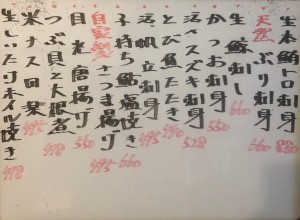 生本鮪トロ刺身 880
天然ぶり刺身 660
生鯨刺し 660
かつお刺身 550
活〆スズキ刺身 528
とび魚たたき
活帆立刺身 495
子持ち鮎塩焼き 660
自家製さつま揚げ 495
目光唐揚げ 550
つぶ貝と大根煮 418
米ナス田楽 495
生しいたけホイル焼き 418